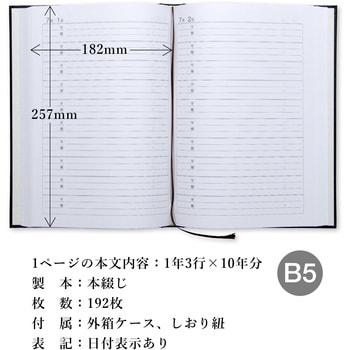 7月1日
7月2日
182mm
257mm
1ページの本文内容：1年3行×10年分
製　本：本綴じ
枚　数：192枚
付　属：外箱ケース、しおり紐
表　記：日付表示あり
B5